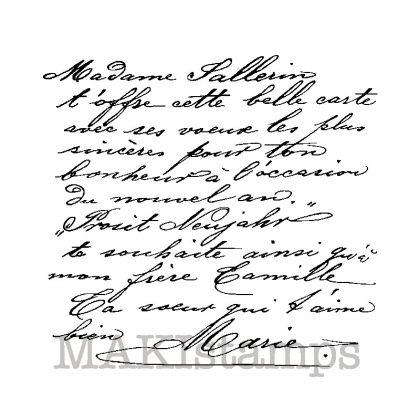 Madame Sallerin
t'offre cette belle carte
avec ses voeux les plus
sincères pour ton
bonheur à l'occasion
du nouvel an.
„Prosit Neujahr"
te souhaite ainsi qu'à
mon frère Camille
Ta soeur qui t'aime
bien Marie.
MAKIstamps